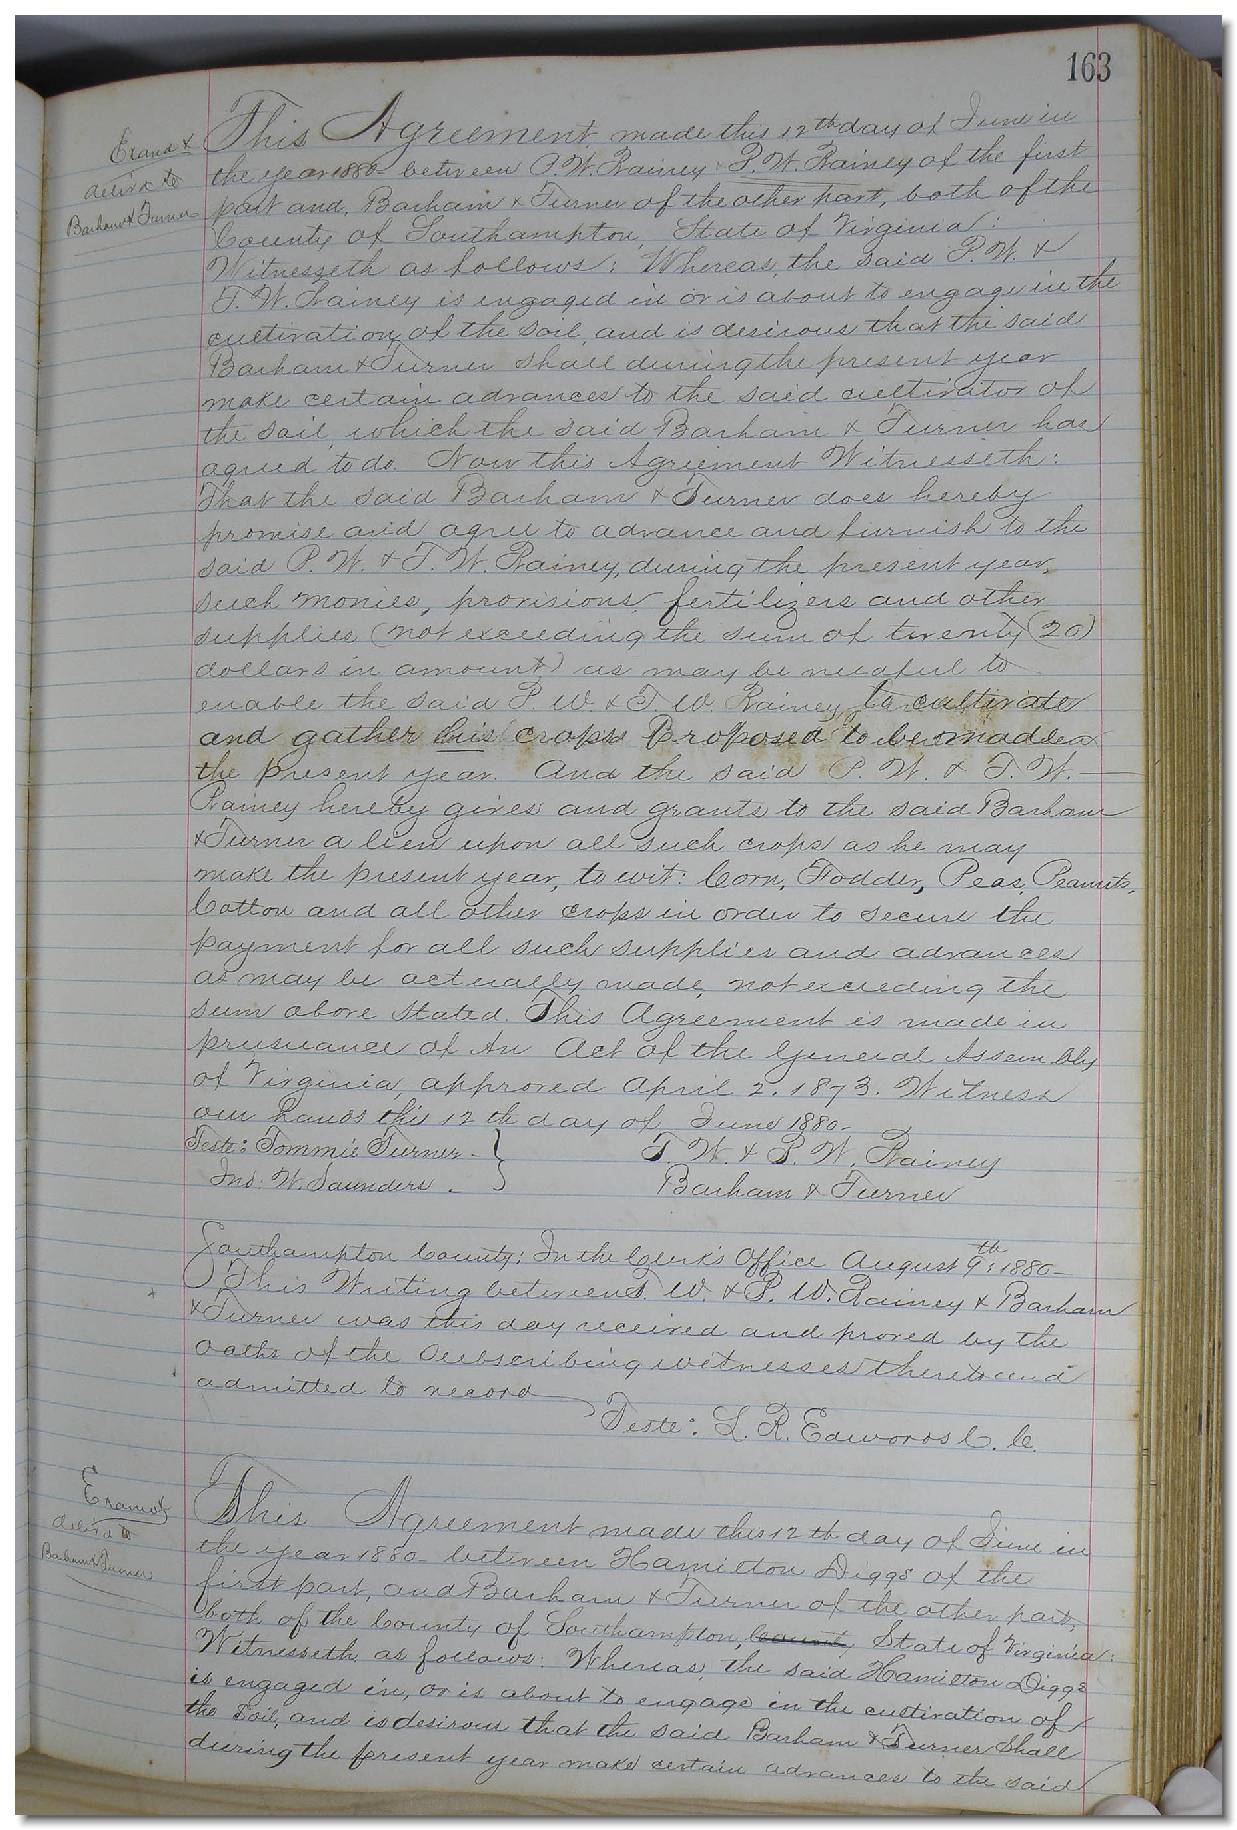 163
Exand &
delivd to
Barham & Turner
This Agreement made this 12th day of June in
the year 1880 between P. W. Rainey & T. W. Rainey of the first
part and, Barham & Turner of the other part, both of the
County of Southampton, State of Virginia:
Witnesseth as follows: Whereas, the said P. W. &
T. W. Rainey is engaged in or is about to engage in the
cultivation of the soil, and is desirous that the said
Barham & Turner shall during the present year
make certain advances to the said cultivator of
the soil, which the said Barham & Turner has
agreed to do. Now this Agreement Witnesseth:
That the said Barham & Turner does hereby
promise and agree to advance and furnish to the
said P. W. & T. W. Rainey, during the present year,
such monies, provisions, fertilizers and other
supplies (not exceeding the sum of twenty (20)
dollars in amount) as may be needful to
enable the said P. W. & T. W. Rainey to cultivate
and gather his crops proposed to be made
the present year. And the said P. W. & T. W. —
Rainey hereby gives and grants to the said Barham
& Turner a lien upon all such crops as he may
make the present year, to wit: Corn, Fodder, Peas, Peanuts,
Cotton and all other crops in order to secure the
payment for all such supplies and advances
as may be actually made, not exceeding the
sum above stated. This Agreement is made in
prusuance of An Act of the General Assembly
of Virginia, approved April 2. 1873. Witness
our hands this 12th day of June 1880-
Teste: Tommie Turner - } T. W. & P. W. Rainey
Jno. W. Saunders - Barham & Turner
Southampton County: In the Clerk's Office August 9th: 1880-
This Writing between T. W. & P. W. Rainey & Barham
& Turner was this day received and proved by the
oaths of the subscribing witnesses thereto and
admitted to record
Teste: L. R. Edwards C. C.
Examd &
delivd to
Barham & Turner
This Agreement made this 12th day of June in
the year 1880- between Hamilton Diggs of the
first part, and Barham & Turner of the other part,
both of the County of Southampton, County State of Virginia:
Witnesseth as follows: Whereas, the said Hamilton Diggs
is engaged in, or is about to engage in the cultivation of
the soil, and is desirous that the said Barham & Turner Shall
during the present year make certain advances to the said